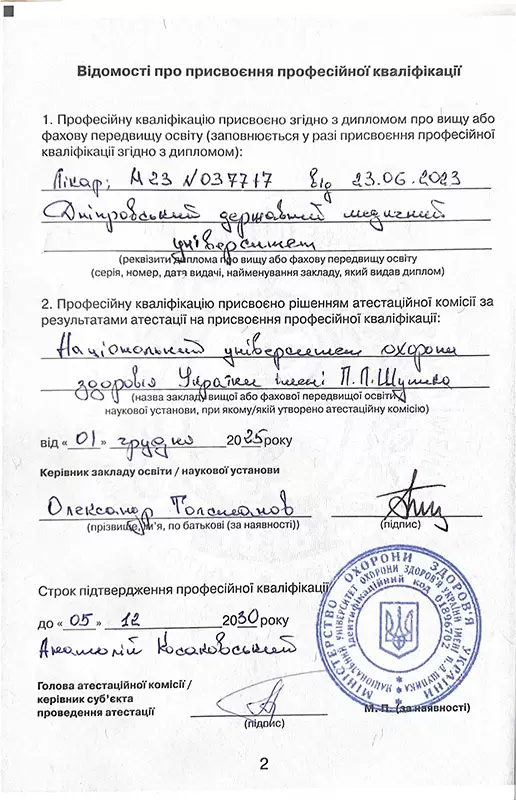 Відомості про присвоєння професійної кваліфікації
1. Професійну кваліфікацію присвоєно згідно з дипломом про вищу або
фахову передвищу освіту (заповнюється у разі присвоєння професійної
кваліфікації згідно з дипломом):
Лікар; М23 N037717 від 23.06.2023
Дніпровський державний медичний
університет
(реквізити диплома про вищу або фахову передвищу освіту
(серія, номер, дата видачі, найменування закладу, який видав диплом)
2. Професійну кваліфікацію присвоєно рішенням атестаційної комісії за
результатами атестації на присвоєння професійної кваліфікації:
Національний університет охорони
здоровія України імені П.Л.Шупика
(назва закладу вищої або фахової передвищої освіти/
наукової установи, при якому/якій утворено атестаційну комісію)
від « 01 » грудня 2025 року
Керівник закладу освіти / наукової установи
Олександр Толстанов
(прізвище, ім’я, по батькові (за наявності))
(підпис)
Строк підтвердження професійної кваліфікації
до « 05 » 12 2030 року
Анатолій Косаковський
Голова атестаційної комісії /
керівник суб’єкта
проведення атестації
(підпис)
М. П. (за наявності)
МІНІСТЕРСТВО ОХОРОНИ ЗДОРОВ'Я УКРАЇНИ
НАЦІОНАЛЬНИЙ УНІВЕРСИТЕТ ОХОРОНИ ЗДОРОВ'Я УКРАЇНИ ІМЕНІ П.Л.ШУПИКА
Ідентифікаційний код 01896702
2